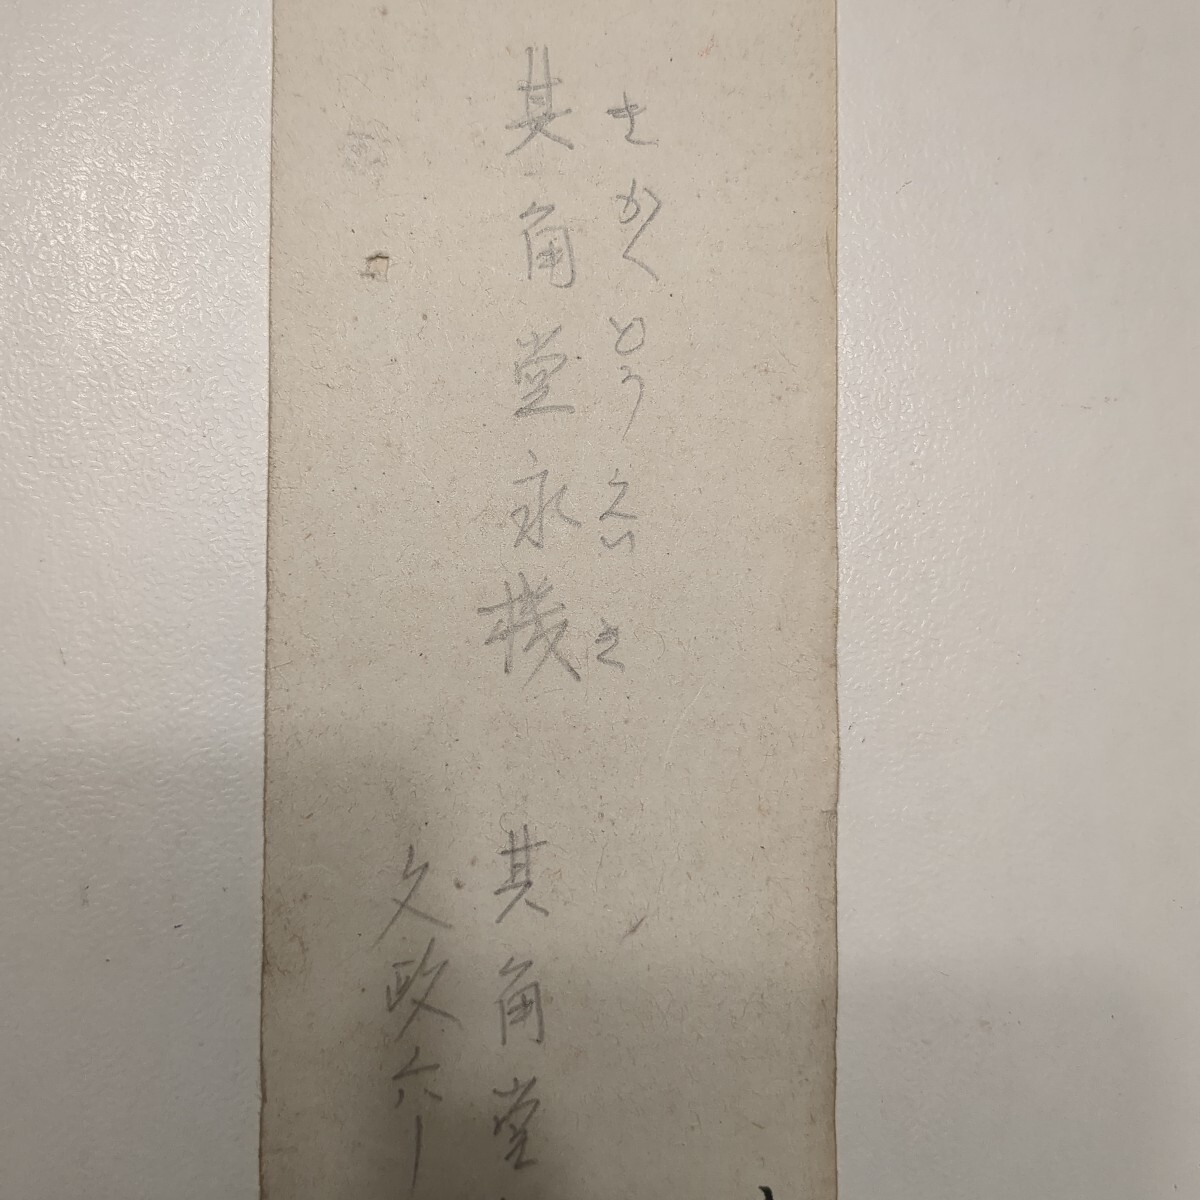 きかくどうえいき
其角堂永機
其角堂
文政六ー